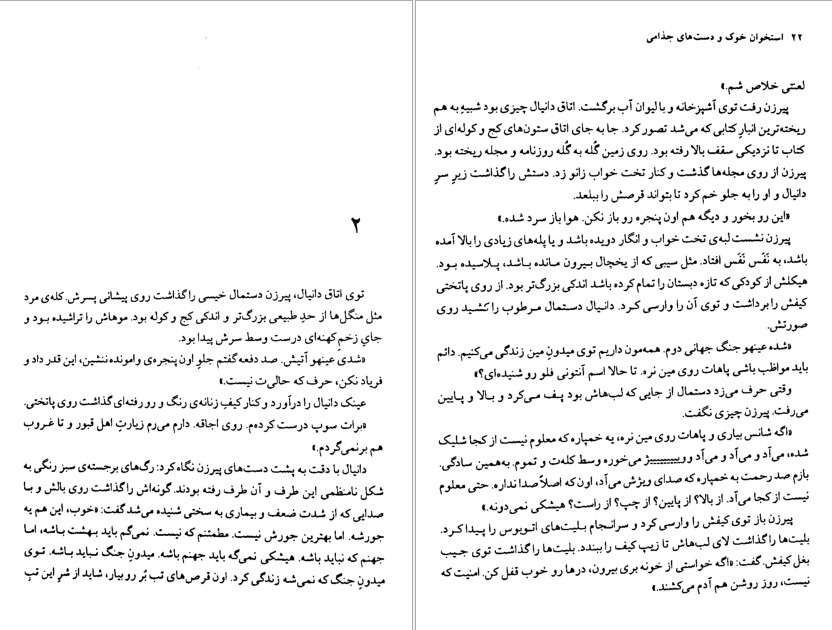 ۲
توی اتاق دانیال، پیرزن دستمال خیسی را گذاشت روی پیشانی پسرش. کله‌ی مرد
مثل منگل‌ها از حدِ طبیعی بزرگ‌تر و اندکی کج و کوله بود. موهاش را تراشیده بود و
جایِ زخمِ کهنه‌ای درست وسط سرش پیدا بود.
«شدی عینهو آتیش. صد دفعه گفتم جلوِ اون پنجره‌ی وامونده ننشین، این قدر داد و
فریاد نکن، حرف که حالی‌ت نیست.»
عینک دانیال را درآورد و کنار کیفِ زنانه‌ی رنگ و رو رفته‌ای گذاشت روی پاتختی.
«برات سوپ درست کرده‌م. روی اجاقه. دارم می‌رم زیارتِ اهل قبور و تا غروب
هم برنمی‌گردم.»
دانیال با دقت به پشت دست‌های پیرزن نگاه کرد: رگ‌های برجسته‌ی سبز رنگی به
شکل نامنظمی این طرف و آن طرف رفته بودند. گونه‌اش را گذاشت روی بالش و با
صدایی که از شدت ضعف و بیماری به سختی شنیده می‌شد گفت: «خوب، این هم یه
جورشه. اما بهترین جورش نیست. مطمئنم که نیست. نمی‌گم باید بهشت باشه، اما
جهنم که نباید باشه. هیشکی نمی‌گه باید جهنم باشه. میدونِ جنگ نباید باشه. توی
میدونِ جنگ که نمی‌شه زندگی کرد. اون قرص‌های تب بُر رو بیار، شاید از شرِ این تبِ
۲۲ استخوان خوک و دست‌های جذامی
لعنتی خلاص شم.»
پیرزن رفت توی آشپزخانه و با لیوان آب برگشت. اتاق دانیال چیزی بود شبیهِ به هم
ریخته‌ترین انبارِ کتابی که می‌شد تصور کرد. جا به جای اتاق ستون‌های کج و کوله‌ای از
کتاب تا نزدیکی سقف بالا رفته بود. روی زمین گُله به گُله روزنامه و مجله ریخته بود.
پیرزن از روی مجله‌ها گذشت و کنار تخت خواب زانو زد. دستش را گذاشت زیرِ سرِ
دانیال و او را به جلو خم کرد تا بتواند قرصش را ببلعد.
«این رو بخور و دیگه هم اون پنجره رو باز نکن. هوا باز سرد شده.»
پیرزن نشست لبه‌ی تخت خواب و انگار دویده باشد و یا پله‌های زیادی را بالا آمده
باشد، به نَفَس نَفَس افتاد. مثل سیبی که از یخچال بیرون مانده باشد، پلاسیده بود.
هیکلش از کودکی که تازه دبستان را تمام کرده باشد اندکی بزرگ‌تر بود. از روی پاتختی
کیفش را برداشت و توی آن را وارسی کرد. دانیال دستمال مرطوب را کشید روی
صورتش.
«شده عینهو جنگ جهانی دوم. همه‌مون داریم توی میدونِ مین زندگی می‌کنیم. دائم
باید مواظب باشی پاهات روی مین نره. تا حالا اسم آنتونی فلو رو شنیده‌ای؟»
وقتی حرف می‌زد دستمال از جایی که لب‌هاش بود پـف می‌کرد و بالا و پایین
می‌رفت. پیرزن چیزی نگفت.
«اگه شانس بیاری و پاهات روی مین نره، یه خمپاره که معلوم نیست از کجا شلیک
شده، می‌آد و می‌آد و می‌آد و وییییییییژ می‌خوره وسط کله‌ت و تموم. به‌همین سادگی.
بازم صد رحمت به خمپاره که صدای ویژش می‌آد، اون‌که اصلاً صدا نداره. حتی معلوم
نیست از کجا می‌آد. از بالا؟ از پایین؟ از چپ؟ از راست؟ هیشکی نمی‌دونه.»
پیرزن باز توی کیفش را وارسی کرد و سرانجام بلیت‌های اتوبوس را پیدا کرد.
بلیت‌ها را گذاشت لای لب‌هاش تا زیپ کیف را ببندد. بلیت‌ها را گذاشت توی جیب
بغل کیفش. گفت: «اگه خواستی از خونه بری بیرون، درها رو خوب قفل کن. امنیت که
نیست، روز روشن هم آدم می‌کشند.»